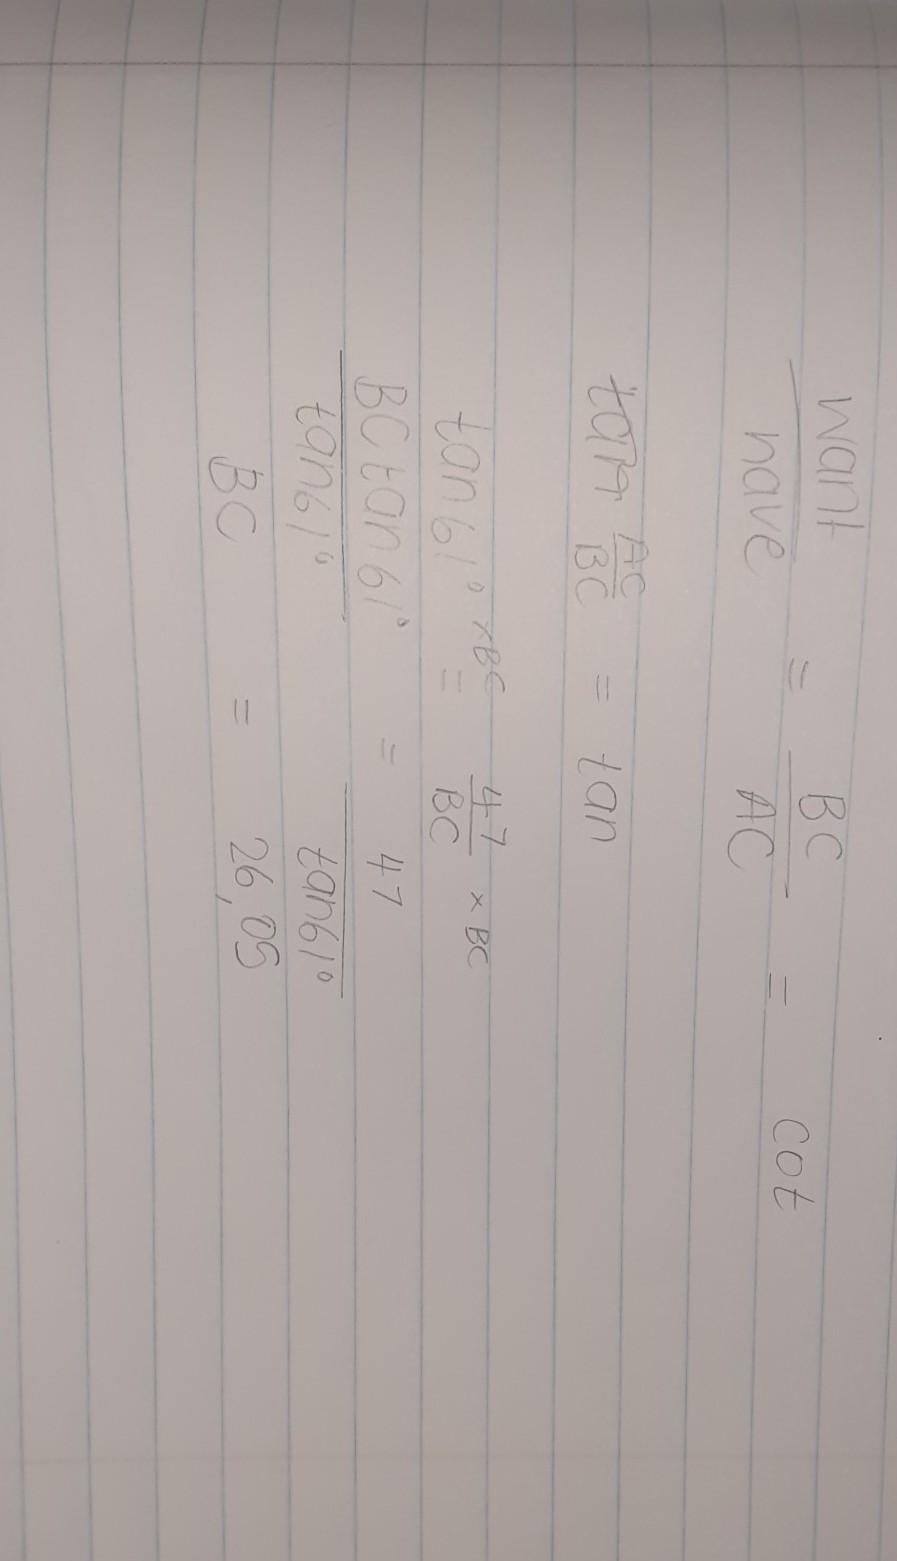 want/have = BC/AC = cot
tan AC/BC = tan
tan61° × BC = 47/BC × BC
BC tan61°/tan61° = 47/tan61°
BC = 26,05